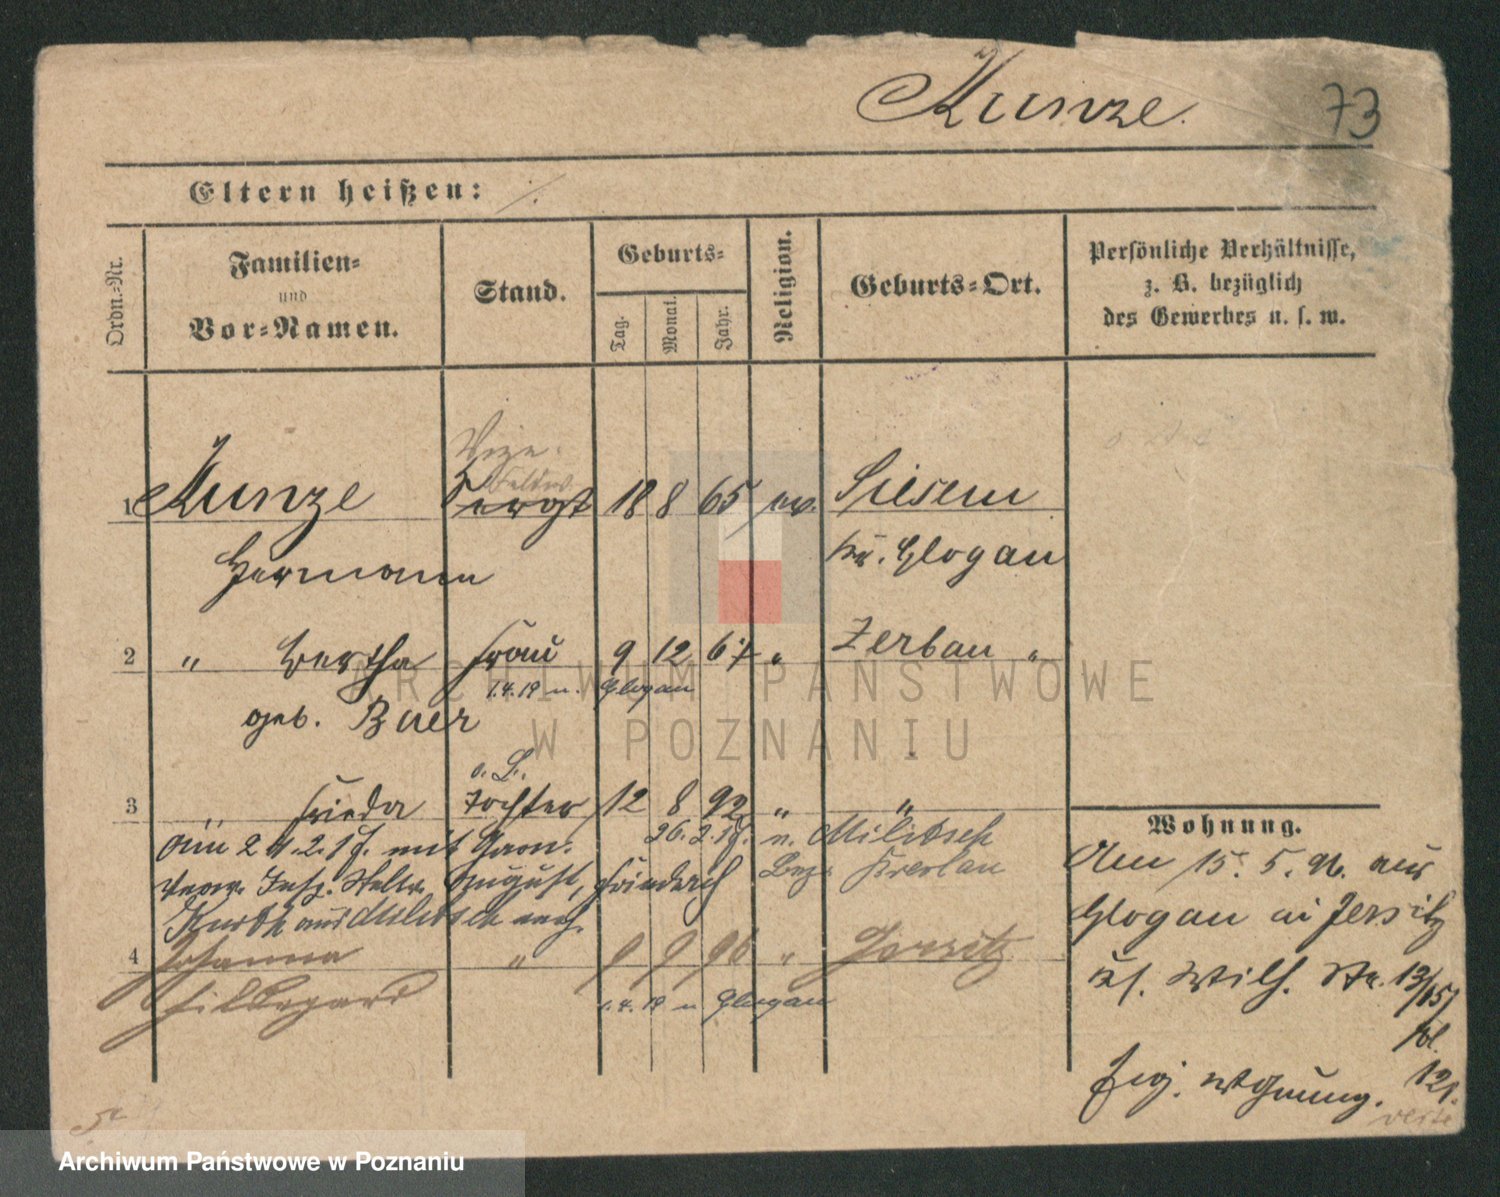 Kunze.
73
Eltern heißen: ./.
Ordn.-Nr.
Familien-
und
Vor-Namen.
Stand.
Geburts-
Tag.
Monat.
Jahr.
Religion.
Geburts-Ort.
Persönliche Verhältnisse,
z. B. bezüglich
des Gewerbes u. s. w.
Vize-
Feldw.
1 Kunze Sergt 18 8 65 ev.
Hermann Kr. Glogau
2 " Bertha Frau 9 12 67 " Zerbau "
1.4.19 n. Glogau
geb. Baer
o. G.
3 Frieda Tochter 12 8 92 " "
am 24.2.17. mit Garn. 26.2.17. n. Militsch
Verw. Insp. August, Friedrich Bez. Breslau
aus Militsch verh.
4 Johanna " 9 9 96 " Jersitz
Hildegard 1.4.19 n Glogau
Wohnung.
Am 15. 5. 96. aus
Glogau in Jersitz
Wilh. Str. 13/15
fol.
121.
Wohnung.
verte
ARCHIWUM PAŃSTWOWE
W POZNANIU
Archiwum Państwowe w Poznaniu